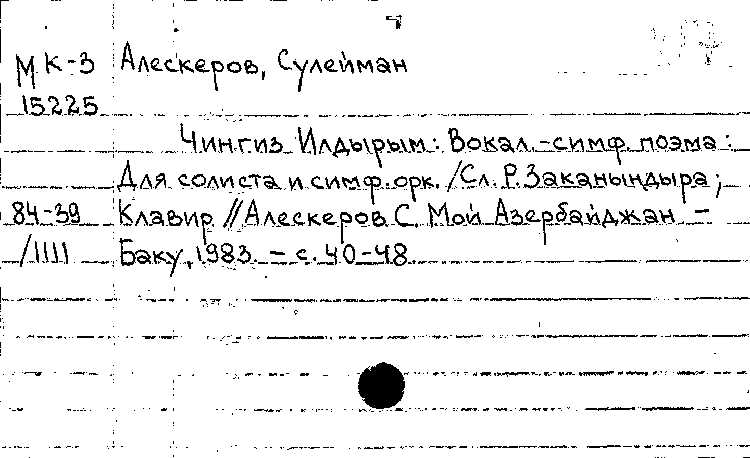 МК-3 Алескеров, Сулейман
15225
Чингиз Илдырым: Вокал.-симф. поэма:
Для солиста и симф. орк. /Сл. Р. Заканындыра;
84-39 Клавир // Алескеров С. Мой Азербайджан. -
/1111 Баку, 1983. - с. 40-48.